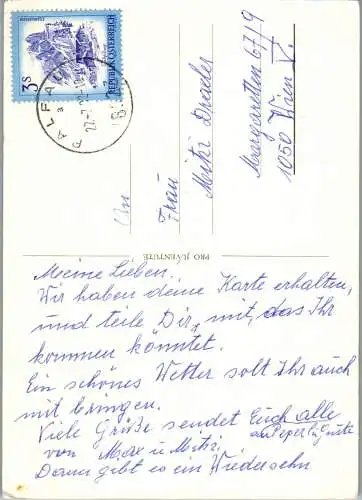 REPUBLIK ÖSTERREICH
3S
PALFAU
An
Frau
Mitzi Drexler
Margaretten 67/9
1050 Wien V.
PRO JUVENTUTE
Meine Lieben.
Wir haben deine Karte erhalten,
und teile "Dir" mit, das Ihr
kommen könntet.
Ein schönes Wetter solt Ihr auch
mit bringen.
Viele Grüße sendet Euch alle
von Max u Mitzi
Dann gibt es ein Wiedersehn